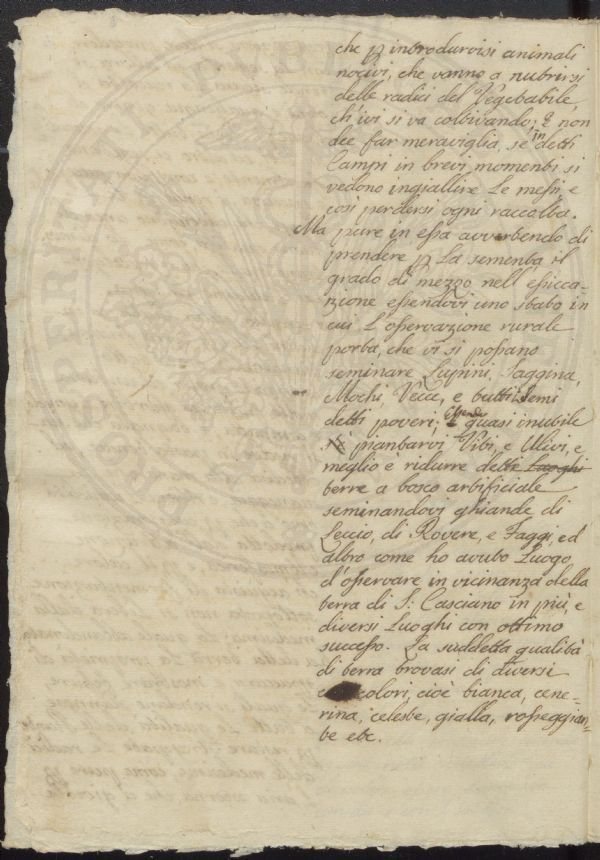 che p introdurvisi animali
nocivi, che vanno a nutrirsi
delle radici del Vegetabile,
ch'ivi si va coltivando; e non
dee far meraviglia, se in detti
Campi in brevi momenti si
vedono ingiallire le messi, e
così perdersi ogni raccolta.
Ma pure in essa avvertendo di
prendere p la sementa il
grado di mezzo nell'essicca-
zione essendovi uno stato in
cui l'osservazione rurale
porta, che vi si possano
seminare Lupini, Saggina,
Mochi, Vecce, e tutti i semi
detti poveri; Essendo quasi inutile
piantarvi Viti, e Ulivi, e
meglio è ridurre dette Luoghi
terre a bosco artificiale
seminandovi ghiande di
Leccio, di Rovere, e Faggi, ed
altro come ho avuto Luogo
d'osservare in vicinanza della
terra di S: Casciano in più, e
diversi Luoghi con ottimo
successo. La suddetta qualità
di terra trovasi di diversi
colori, cioè bianca, cene-
rina, celeste, gialla, rosseggian-
te etc.